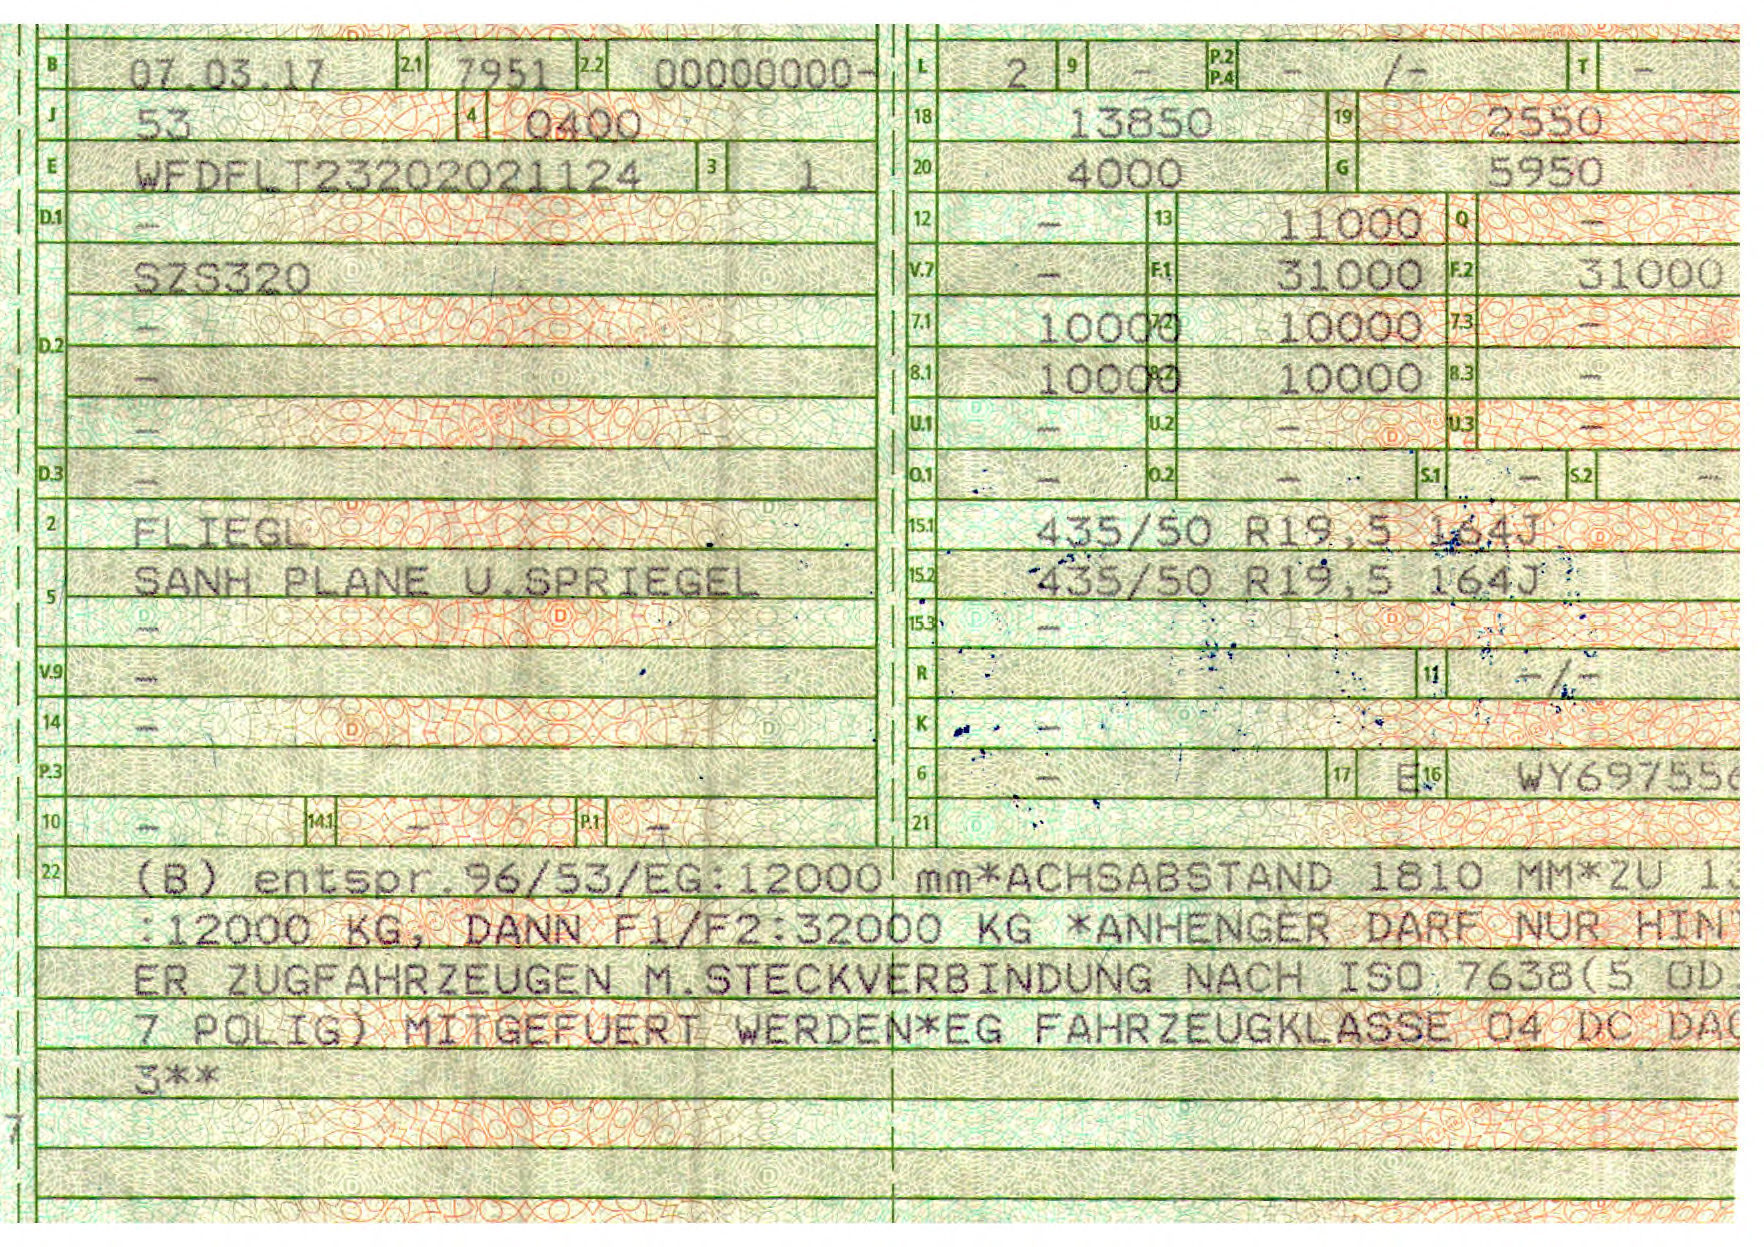 B 07.03.17 2.1 7951 2.2 00000000-
J 53 4 0400
E WFDFLT23202021124 3 1
D.1 -
SZS320
D.2 -
-
-
D.3 -
2 FLIEGL
5 SANH PLANE U.SPRIEGEL
-
V.9 -
14 -
P.3
10 - 14.1 - P.1 -
L 2 9 - P.2 P.4 - /- T -
18 13850 19 2550
20 4000 G 5950
12 - 13 11000 Q -
V.7 - F.1 31000 F.2 31000
7.1 10000 7.2 10000 7.3 -
8.1 10000 8.2 10000 8.3 -
U.1 - U.2 - U.3 -
O.1 - O.2 - S.1 - S.2 -
15.1 435/50 R19,5 164J
15.2 435/50 R19,5 164J
15.3 -
R 11 -/-
K -
6 - 17 E 16 WY697556
21
22 (B) entspr.96/53/EG:12000 mm*ACHSABSTAND 1810 MM*ZU 13
:12000 KG, DANN F1/F2:32000 KG *ANHENGER DARF NUR HINT
ER ZUGFAHRZEUGEN M.STECKVERBINDUNG NACH ISO 7638(5 OD
7 POLIG) MITGEFUERT WERDEN*EG FAHRZEUGKLASSE O4 DC DA0
3**